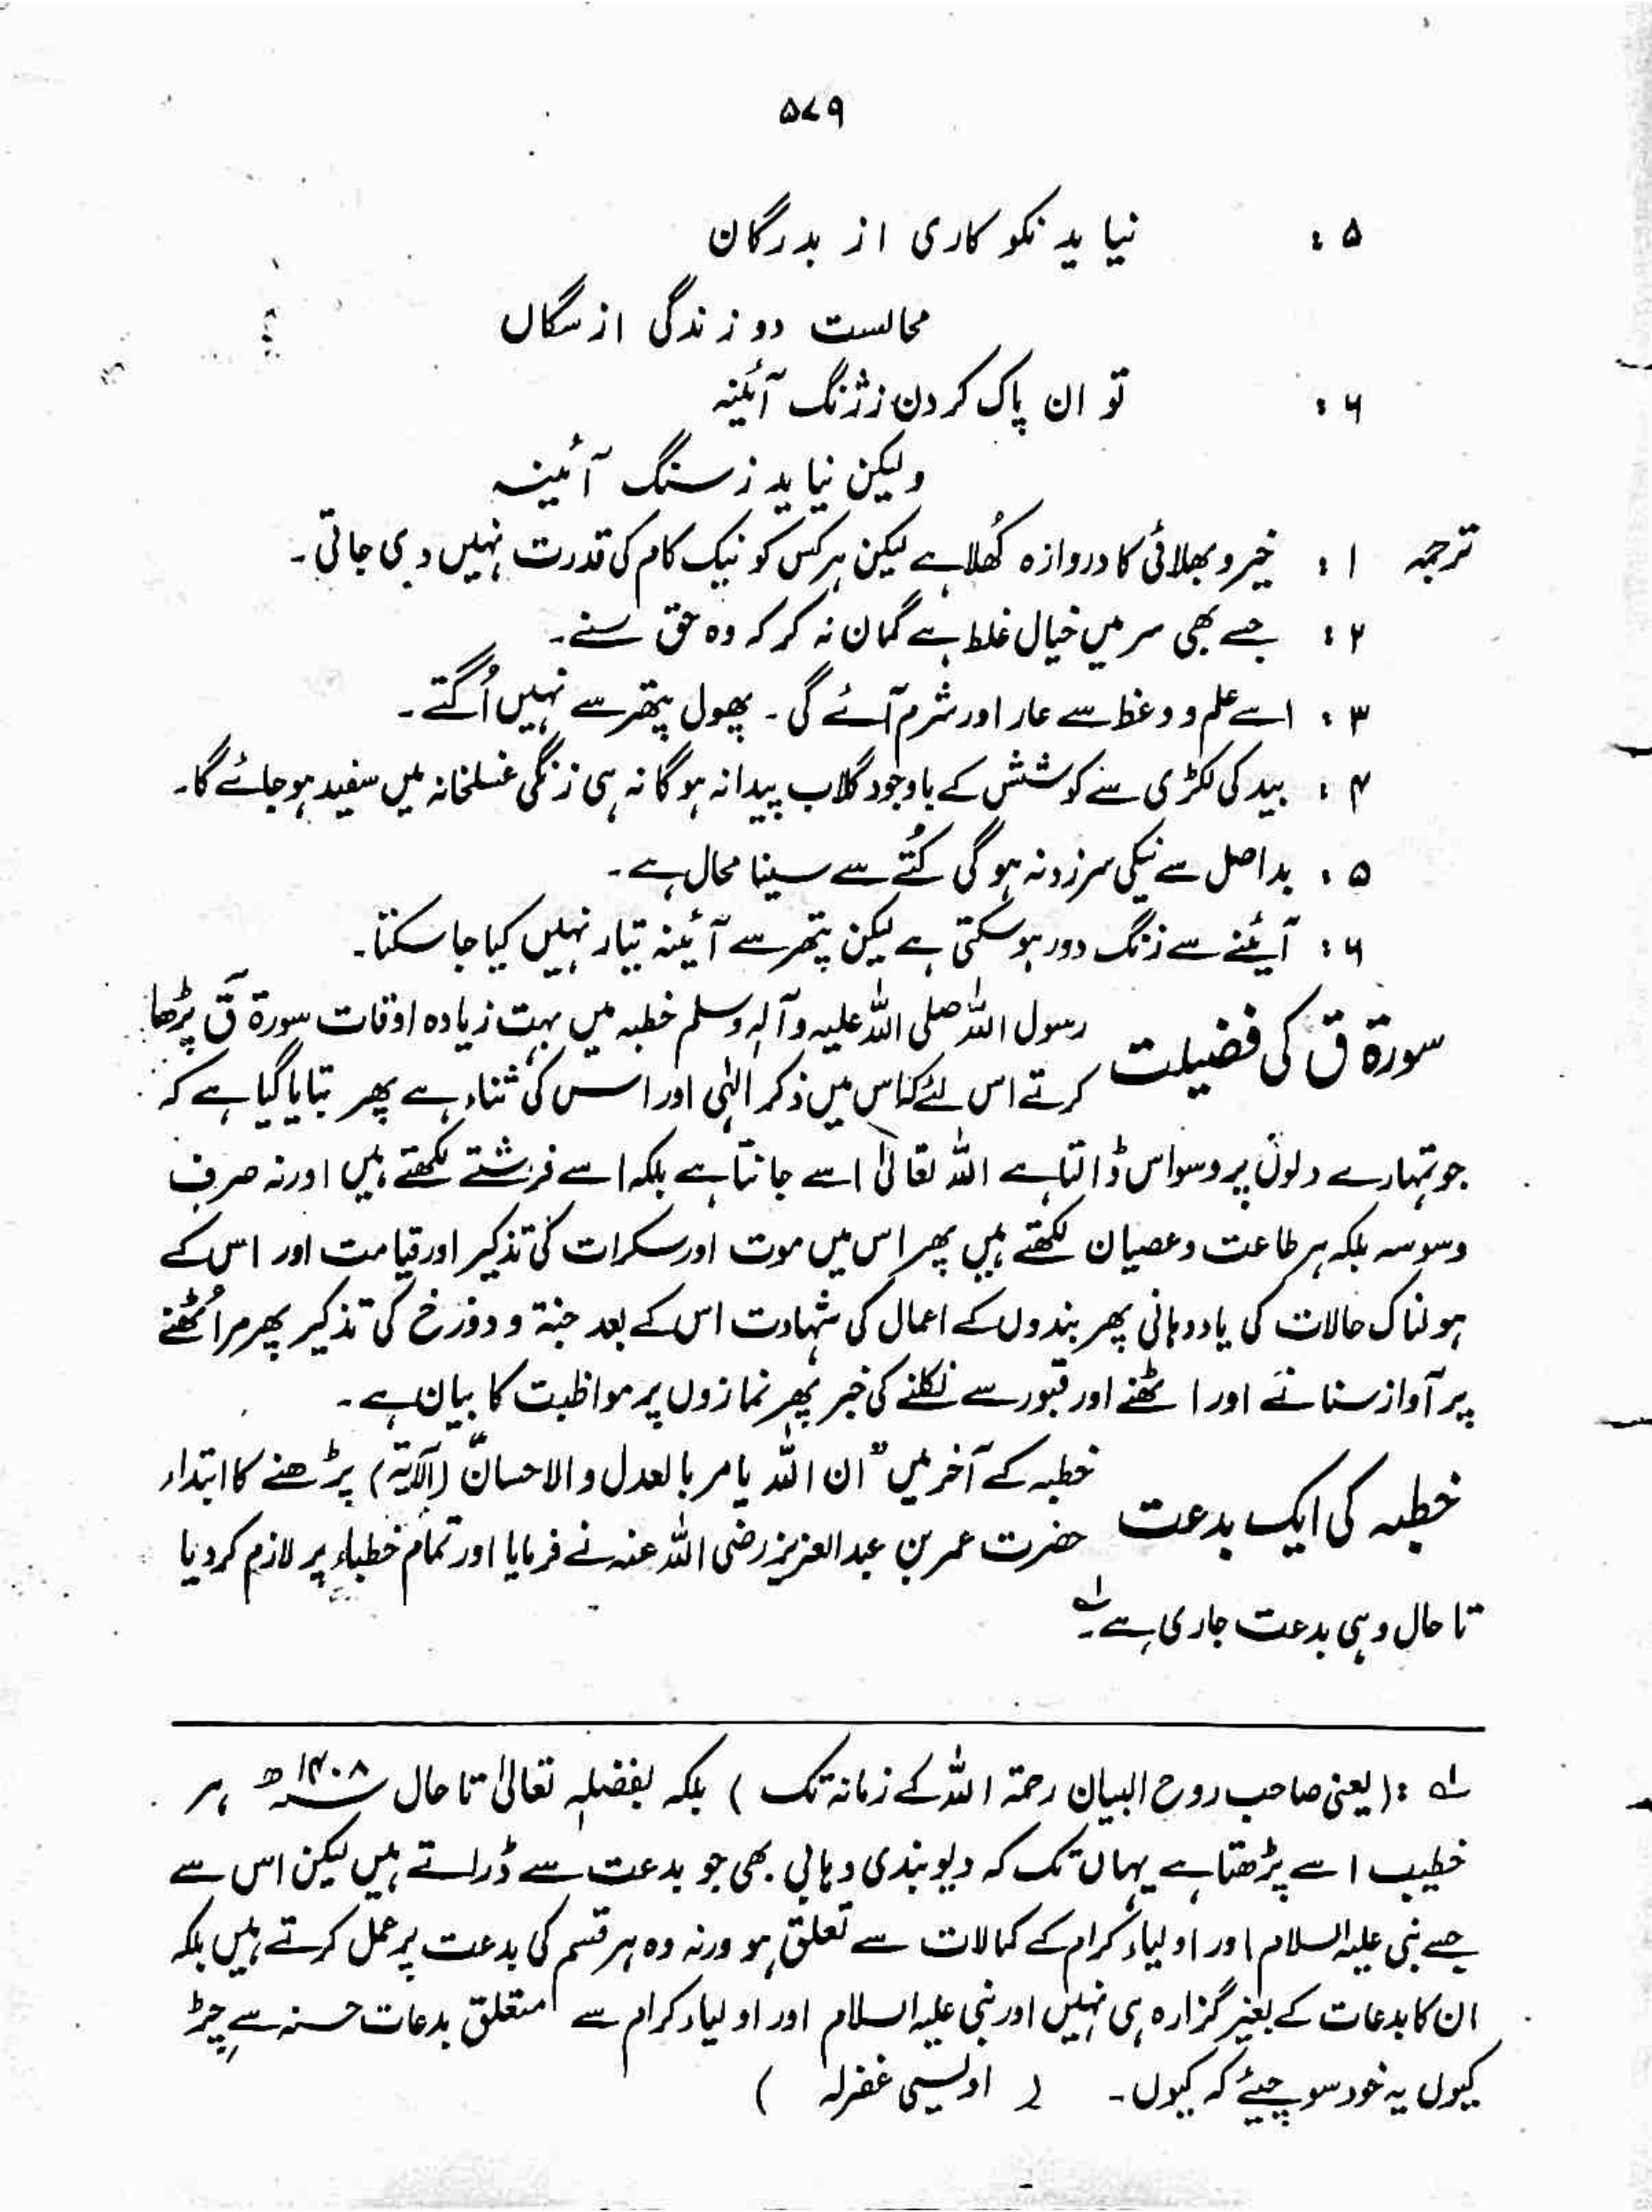 ۵۷۹
۵ : نیاید نکو کاری از بدرگان
محالست دوزندگی از سگاں
۶ : تو ان پاک کردن ز ژنگ آئینہ
ولیکن نیاید ز سنگ آئینہ
ترجمہ ۱ : خیر و بھلائی کا دروازہ کُھلا ہے لیکن ہر کس کو نیک کام کی قدرت نہیں دی جاتی۔
۲ : جسے بھی سر میں خیال غلط ہے گمان نہ کر کہ وہ حق سنے۔
۳ : اسے علم و وعظ سے عار اور شرم آئے گی۔ پھول پتھر سے نہیں اُگتے۔
۴ : بید کی لکڑی سے کوشش کے باوجود گلاب پیدا نہ ہوگا نہ ہی زنگی غسلخانہ میں سفید ہو جائے گا۔
۵ : بد اصل سے نیکی سرزد نہ ہوگی کُتّے سے سینا محال ہے۔
۶ : آئینے سے زنگ دور ہو سکتی ہے لیکن پتھر سے آئینہ تیار نہیں کیا جا سکتا۔
سورۃ ق کی فضیلت رسول اللہ صلی اللہ علیہ وآلہ وسلم خطبہ میں بہت زیادہ اوقات سورۃ قٓ پڑھا
کرتے اس لئے کہ اس میں ذکر الٰہی اور اس کی ثناء ہے پھر بتایا گیا ہے کہ
جو تمہارے دلوں پر وسواس ڈالتا ہے اللہ تعالیٰ اسے جانتا ہے بلکہ اسے فرشتے لکھتے ہیں اور نہ صرف
وسوسہ بلکہ ہر طاعت و عصیان لکھتے ہیں پھر اس میں موت اور سکرات کی تذکیر اور قیامت اور اس کے
ہولناک حالات کی یاد دہانی پھر بندوں کے اعمال کی شہادت اس کے بعد جنۃ و دوزخ کی تذکیر پھر مر اُٹھنے
پر آواز سنانے اور اٹھنے اور قبور سے نکلنے کی خبر پھر نمازوں پر مواظبت کا بیان ہے۔
خطبہ کی ایک بدعت خطبہ کے آخر میں "ان اللہ یامر بالعدل والاحسان" (الآیۃ) پڑھنے کا ابتداء
حضرت عمر بن عبدالعزیز رضی اللہ عنہ نے فرمایا اور تمام خطباء پر لازم کر دیا
تا حال وہی بدعت جاری ہے۔ؕ۱
۱ؕ : (یعنی صاحب روح البیان رحمۃ اللہ کے زمانہ تک) بلکہ بفضلہٖ تعالیٰ تا حال ۱۴۰۸ھ ہر
خطیب اسے پڑھتا ہے یہاں تک کہ دیوبندی وہابی بھی جو بدعت سے ڈراتے ہیں لیکن اس سے
جسے نبی علیہ السلام اور اولیاء کرام کے کمالات سے تعلق ہو ورنہ وہ ہر قسم کی بدعت پر عمل کرتے ہیں بلکہ
ان کا بدعات کے بغیر گزارہ ہی نہیں اور نبی علیہ السلام اور اولیاء کرام سے متعلق بدعات حسنہ سے چِڑ
کیوں یہ خود سوچیئے کہ کیوں۔ ( اویسی غفرلہ )